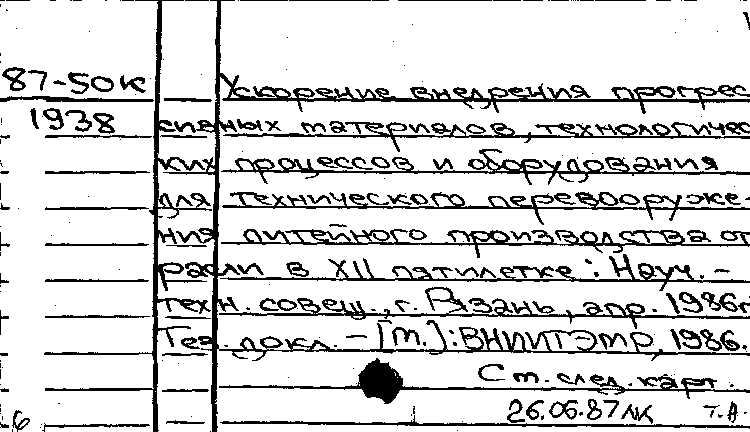 87-50к Ускорение внедрения прогрес
1938 сивных материалов, технологичес
ких процессов и оборудования
для технического перевооруже-
ния литейного производства от
расли в XII пятилетке: Науч.-
техн. совещ., г. Рязань, апр. 1986г
Тез. докл. – [М.]: ВНИИТЭМР, 1986.
См. след. карт.
26.06.87 т.А.
6